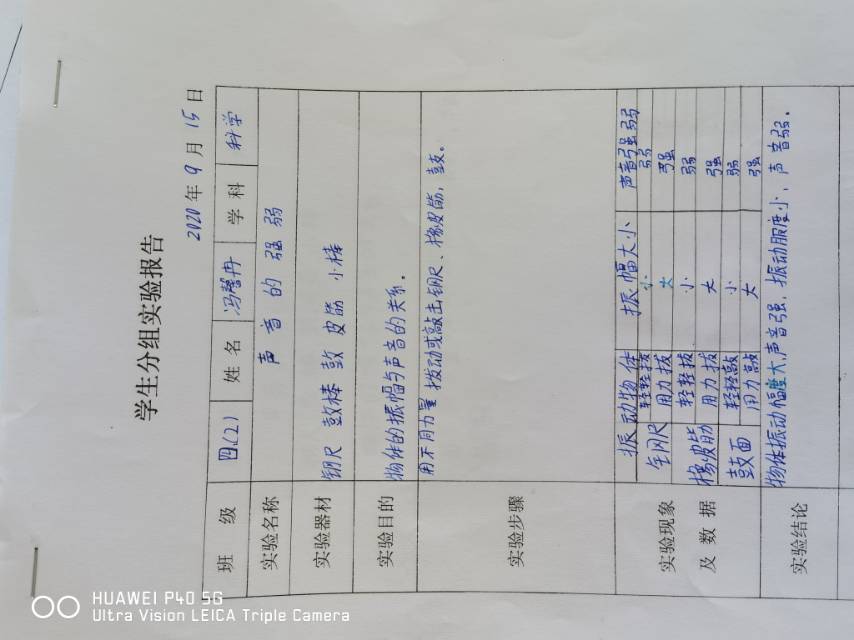 学生分组实验报告
2020年9月15日
班级 四(2) 姓名 冯馨冉 学科 科学
实验名称 声音的强弱
实验器材 钢尺 鼓棒 鼓 皮筋 小棒
实验目的 物体的振幅与声音的关系。
实验步骤 用不同力量拨动或敲击钢尺、橡皮筋,鼓。
实验现象及数据
振动物体 振幅大小 声音强弱
钢尺 轻轻拨 小 弱
用力拨 大 强
橡皮筋 轻轻拨 小 弱
用力拨 大 强
鼓面 轻轻敲 小 弱
用力敲 大 强
实验结论 物体振动幅度大,声音强,振动服度小,声音弱。
HUAWEI P40 5G
Ultra Vision LEICA Triple Camera